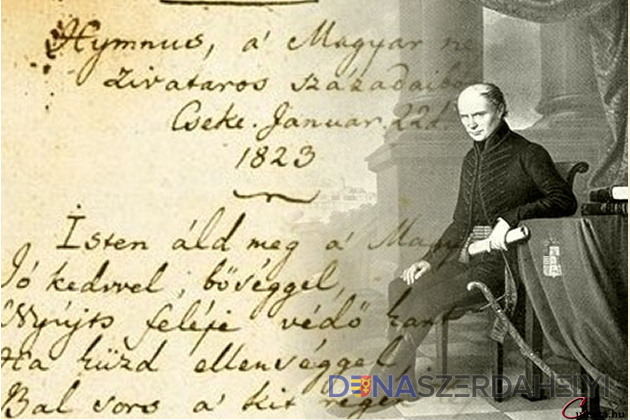 Hymnus, a' Magyar
Zivataros századaiból
Cseke. Januar. 22d.
1823
Isten áld meg a' Magy
Jó kedvvel, bőséggel,
Nyújts feléje védő kart
Ha küzd ellenséggel
Bal sors a' kit
DUNASZERDAHELYI